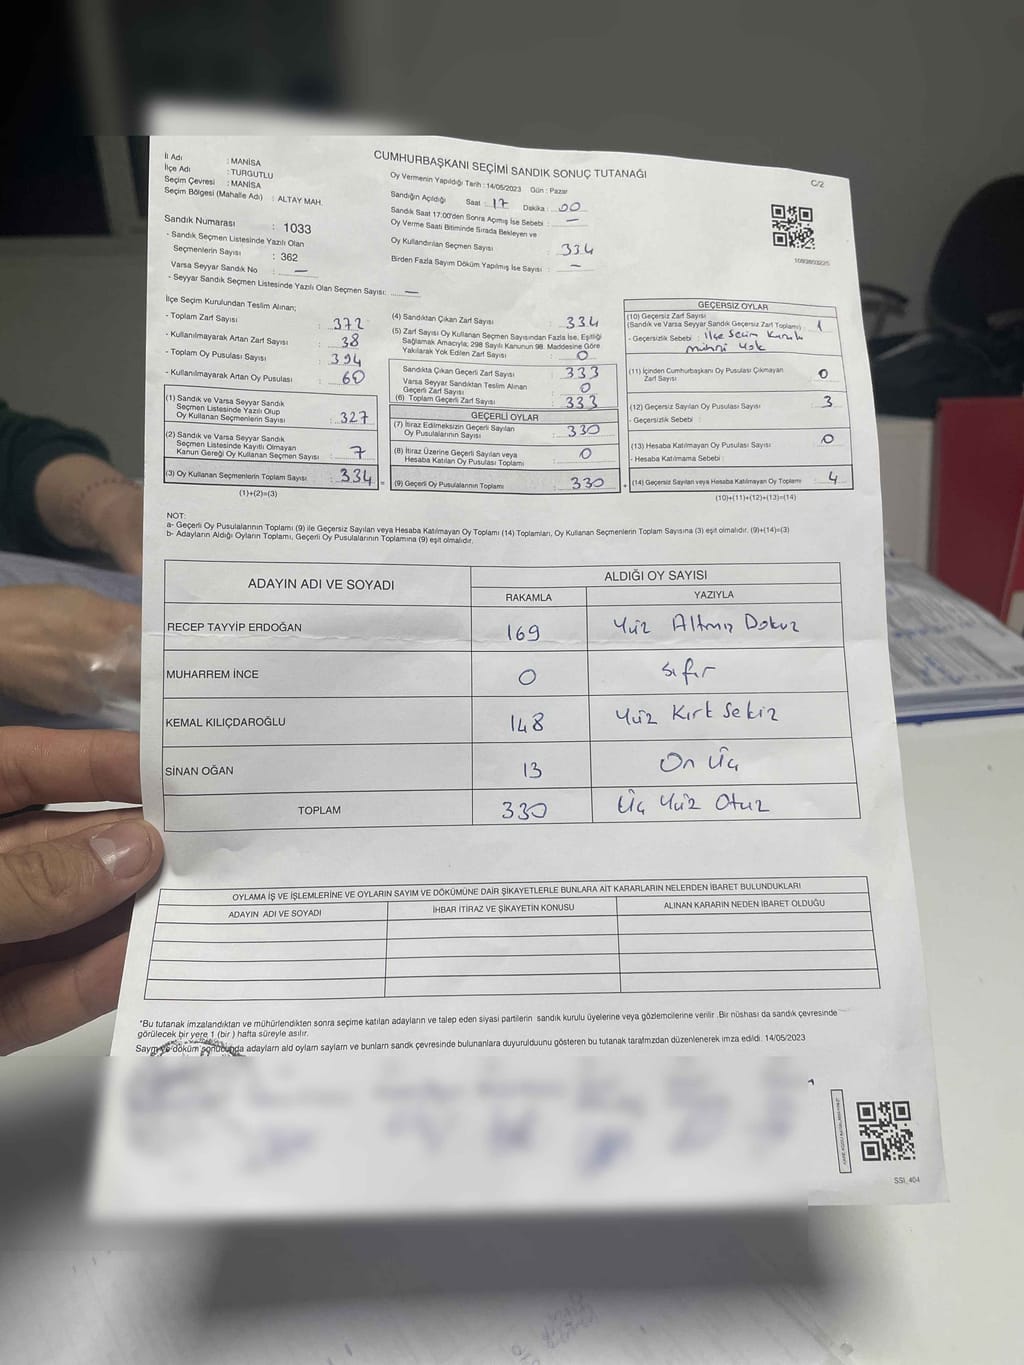 CUMHURBAŞKANI SEÇİMİ SANDIK SONUÇ TUTANAĞI
C/2
İl Adı : MANİSA
İlçe Adı : TURGUTLU
Seçim Çevresi : MANİSA
Seçim Bölgesi (Mahalle Adı) : ALTAY MAH.
Oy Vermenin Yapıldığı Tarih : 14/05/2023 Gün : Pazar
Sandığın Açıldığı Saat : 17 Dakika : 00
Sandık Saat 17.00'den Sonra Açmış İse Sebebi : —
Oy Verme Saati Bitiminde Sırada Bekleyen ve
Oy Kullandırılan Seçmen Sayısı : 334
Birden Fazla Sayım Döküm Yapılmış İse Sayısı : —
Sandık Numarası : 1033
- Sandık Seçmen Listesinde Yazılı Olan
Seçmenlerin Sayısı : 362
Varsa Seyyar Sandık No : —
- Seyyar Sandık Seçmen Listesinde Yazılı Olan Seçmen Sayısı: —
İlçe Seçim Kurulundan Teslim Alınan;
- Toplam Zarf Sayısı : 372
- Kullanılmayarak Artan Zarf Sayısı : 38
- Toplam Oy Pusulası Sayısı : 394
- Kullanılmayarak Artan Oy Pusulası : 60
(1) Sandık ve Varsa Seyyar Sandık
Seçmen Listesinde Yazılı Olup
Oy Kullanan Seçmenlerin Sayısı : 327
(2) Sandık ve Varsa Seyyar Sandık
Seçmen Listesinde Kayıtlı Olmayan
Kanun Gereği Oy Kullanan Seçmen Sayısı : 7
(3) Oy Kullanan Seçmenlerin Toplam Sayısı : 334
(1)+(2)=(3)
(4) Sandıktan Çıkan Zarf Sayısı : 334
(5) Zarf Sayısı Oy Kullanan Seçmen Sayısından Fazla İse, Eşitliği
Sağlamak Amacıyla; 298 Sayılı Kanunun 98. Maddesine Göre
Yakılarak Yok Edilen Zarf Sayısı : 0
Sandıkta Çıkan Geçerli Zarf Sayısı : 333
Varsa Seyyar Sandıktan Teslim Alınan
Geçerli Zarf Sayısı : 0
(6) Toplam Geçerli Zarf Sayısı : 333
GEÇERLİ OYLAR
(7) İtiraz Edilmeksizin Geçerli Sayılan
Oy Pusulalarının Sayısı : 330
(8) İtiraz Üzerine Geçerli Sayılan veya
Hesaba Katılan Oy Pusulası Toplamı : 0
= (9) Geçerli Oy Pusulalarının Toplamı : 330
1093893225
GEÇERSİZ OYLAR
(10) Geçersiz Zarf Sayısı
(Sandık ve Varsa Seyyar Sandık Geçersiz Zarf Toplamı) : 1
- Geçersizlik Sebebi : ilçe Seçim Kurulu
mührü yok
(11) İçinden Cumhurbaşkanı Oy Pusulası Çıkmayan
Zarf Sayısı : 0
(12) Geçersiz Sayılan Oy Pusulası Sayısı : 3
- Geçersizlik Sebebi :
(13) Hesaba Katılmayan Oy Pusulası Sayısı : 0
- Hesaba Katılmama Sebebi :
+ (14) Geçersiz Sayılan veya Hesaba Katılmayan Oy Toplamı : 4
(10)+(11)+(12)+(13)=(14)
NOT:
a- Geçerli Oy Pusulalarının Toplamı (9) ile Geçersiz Sayılan veya Hesaba Katılmayan Oy Toplamı (14) Toplamları, Oy Kullanan Seçmenlerin Toplam Sayısına (3) eşit olmalıdır. (9)+(14)=(3)
b- Adayların Aldığı Oyların Toplamı, Geçerli Oy Pusulalarının Toplamına (9) eşit olmalıdır.
ADAYIN ADI VE SOYADI
ALDIĞI OY SAYISI
RAKAMLA YAZIYLA
RECEP TAYYİP ERDOĞAN 169 Yüz Altmış Dokuz
MUHARREM İNCE 0 sıfır
KEMAL KILIÇDAROĞLU 148 Yüz Kırk Sekiz
SİNAN OĞAN 13 On Üç
TOPLAM 330 Üç Yüz Otuz
OYLAMA İŞ VE İŞLEMLERİNE VE OYLARIN SAYIM VE DÖKÜMÜNE DAİR ŞİKAYETLERLE BUNLARA AİT KARARLARIN NELERDEN İBARET BULUNDUKLARI
ADAYIN ADI VE SOYADI İHBAR İTİRAZ VE ŞİKAYETİN KONUSU ALINAN KARARIN NEDEN İBARET OLDUĞU
*Bu tutanak imzalandıktan ve mühürlendikten sonra seçime katılan adayların ve talep eden siyasi partilerin sandık kurulu üyelerine veya gözlemcilerine verilir .Bir nüshası da sandık çevresinde
görülecek bir yere 1 (bir ) hafta süreyle asılır.
Saym ve döküm sonucunda adaylarn ald oylarn saylarn ve bunlarn sandk çevresinde bulunanlara duyurulduunu gösteren bu tutanak tarafmzdan düzenlenerek imza edildi. 14/05/2023
SSI_404